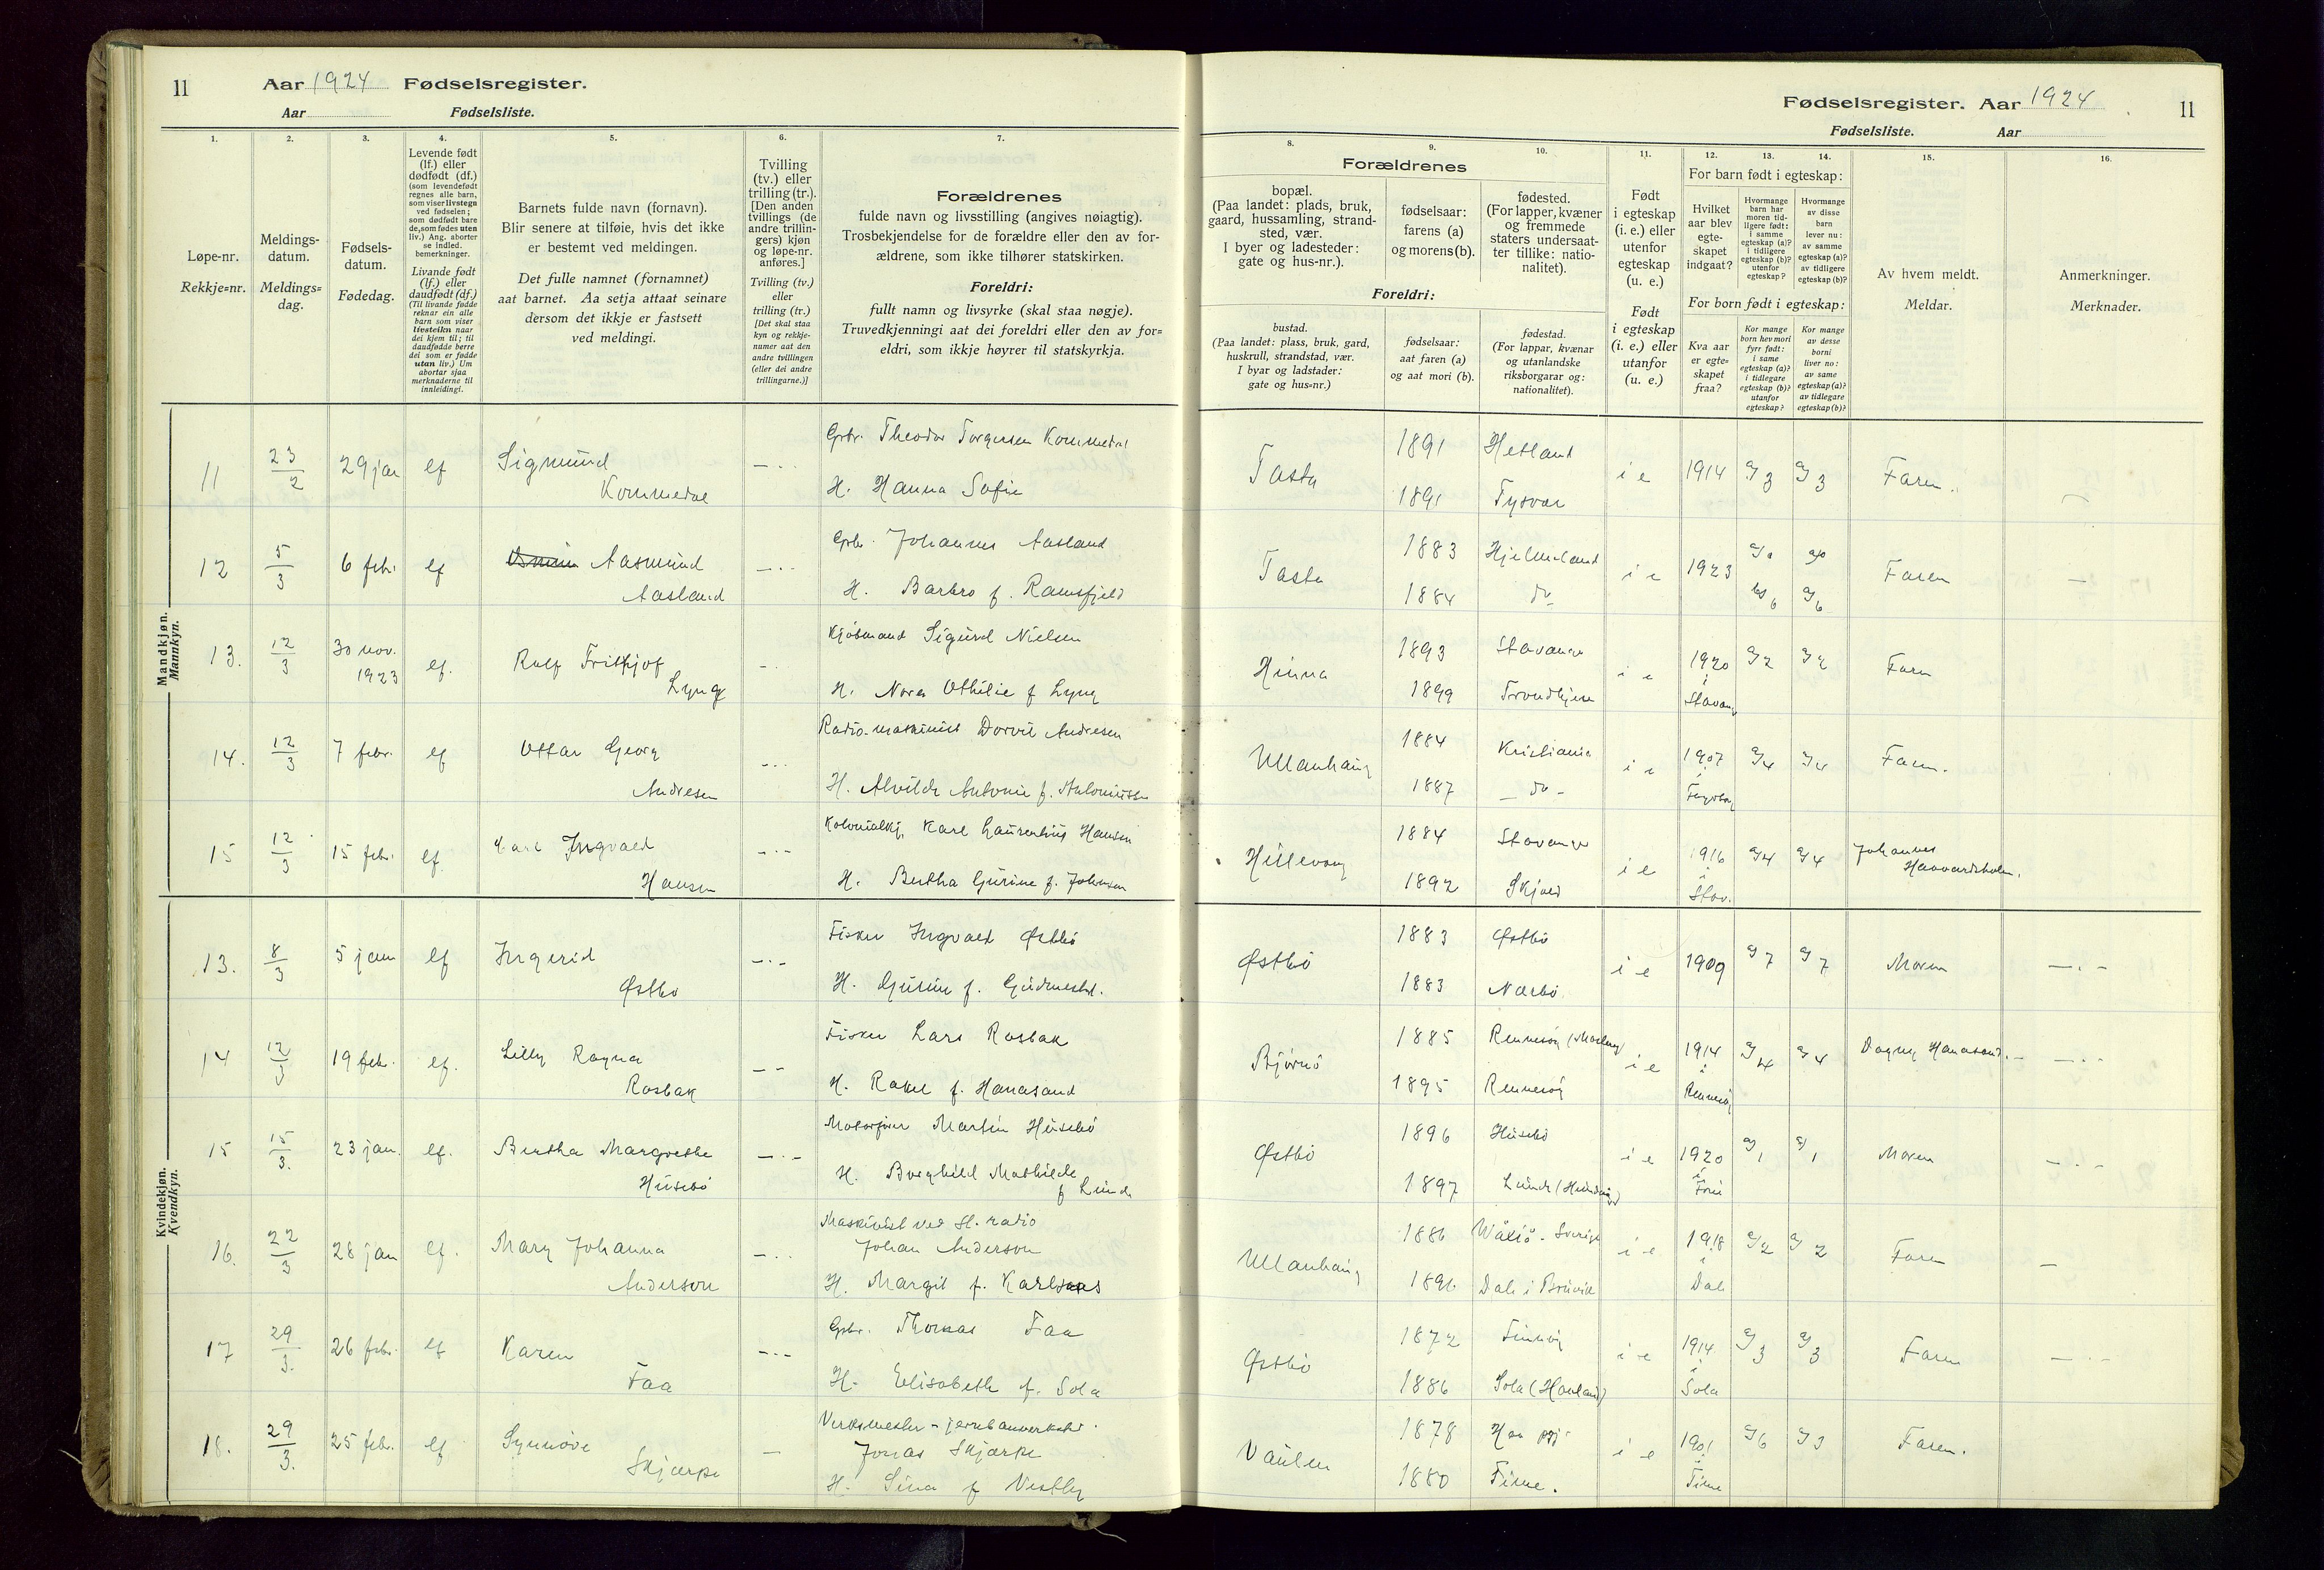 11 Aar 1924 Fødselsregister.
Aar Fødselsliste.
Fødselsregister. Aar 1924 11
Fødselsliste. Aar
1. 2. 3. 4. 5. 6. 7.
8. 9. 10. 11. 12. 13. 14. 15. 16.
Løpe-nr.
Rekkje=nr.
Meldings-
datum.
Meldings=
dag.
Fødsels-
datum.
Fødedag.
Levende født
(lf.) eller
dødfødt (df.)
(som levendefødt
regnes alle barn,
som viser livstegn
ved fødselen;
som dødfødt bare
de, som fødes uten
liv.) Ang. aborter
se indled.
bemerkninger.
Livande født
(lf.) eller
daudfødt (df.)
(Til livande fødde
reknar ein alle
barn som viser
livsteikn naar
dei kjem til; til
daudfødde berre
dei som er fødde
utan liv.) Um
abortar sjaa
merknaderne til
innleidingi.
Barnets fulde navn (fornavn).
Blir senere at tilføie, hvis det ikke
er bestemt ved meldingen.
Det fulle namnet (fornamnet)
aat barnet. Aa setja attaat seinare
dersom det ikkje er fastsett
ved meldingi.
Tvilling
(tv.) eller
trilling (tr.).
[Den anden
tvillings (de
andre trillin-
gers) kjøn
og løpe-nr.
anføres.]
Tvilling (tv.)
eller
trilling (tr.)
[Det skal staa
kyn og rekkje-
numer aat den
andre tvillingen
(eller dei andre
trillingarne.)]
Forældrenes
fulde navn og livsstilling (angives nøiagtig).
Trosbekjendelse for de forældre eller den av for-
ældrene, som ikke tilhører statskirken.
Foreldri:
fullt namn og livsyrke (skal staa nøgje).
Truvedkjenningi aat dei foreldri eller den av for=
eldri, som ikkje høyrer til statskyrkja.
Forældrenes
bopæl.
(Paa landet: plads, bruk,
gaard, hussamling, strand-
sted, vær.
I byer og ladesteder:
gate og hus-nr.).
fødselsaar:
farens (a)
og morens (b).
fødested.
(For lapper, kvæner
og fremmede
staters undersaat-
ter tillike: natio-
nalitet).
Foreldri:
bustad.
(Paa landet: plass, bruk, gard,
huskrull, strandstad, vær.
I byar og ladstader:
gate og hus=nr.)
fødselsaar:
aat faren (a)
og aat mori (b).
fødestad.
(For lappar, kvænar
og utanlandske
riksborgarar og:
nationalitet).
Født
i egteskap
(i. e.) eller
utenfor
egteskap
(u. e.)
Født
i egteskap
(i. e.) eller
utanfor
(u. e.)
For barn født i egteskap:
Hvilket
aar blev
egte-
skapet
indgaat?
Hvormange
barn har
moren tid-
ligere født:
i samme
egteskap (a)?
i tidligere
egteskap (b)?
utenfor
egteskap?
Hvormange
av disse
barn
lever nu:
av samme
egteskap (a)?
av tidligere
egteskap (b)?
For born født i egteskap:
Kva aar
er egte=
skapet
fraa?
Kor mange
born hev mori
fyrr født:
i same
egteskap (a)?
i tidlegare
egteskap (b)?
utanfor
egteskap?
Kor mange
av desse
borni
liver no:
av same
egteskap (a)?
av tidlegare
egteskap (b)?
Av hvem meldt.
Meldar.
Anmerkninger.
Merknader.
Mandkjøn.
Mannkyn.
11 23/2 29 jan lf Sigmund Kommedal Gbr. Theodor Torgersen Kommedal
H. Hanna Sofie
Tasta 1891 Hetland i e 1914 a/3 a/3 Faren.
1891 Tysvær
12 5/3 6 febr. lf Aasmund Aasland Gbr. Johannes Aasland
H. Barbro f. Ramsfjeld
Tasta 1883 Hjelmeland i e 1923 Faren
1884 do b/6
13. 12/3 30 nov. 1923 lf. Rolf Frithjof Lyng Kjøbmand Sigurd Nielsen
H. Nora Othilie f Lyng
Hinna 1893 Stavanger i e 1920 a/2 a/2 Faren
1899 Trondhjem i Stavang
14. 12/3 7 febr. lf Ottar Georg Andresen Radio-maskinist Andresen
H. Alvilde Antonie f. Antoniussen
Ullanhaug 1884 Kristiania i e 1907 a/4 a/4 Faren.
1887 - do -
15 12/3 15 febr. lf Karl Ingvald Hansen Kolonialkj. Karl Laurentius Hansen
H. Bertha Gurine f. Johnsen
Hillevaag 1884 Stavanger i e 1916 a/4 a/4 Johannes Haavardsholm.
1892 Skjold i Stav.
Kvindekjøn.
Kvendkyn.
13. 8/3 5 jan lf Ingerid Østbø Fisker Ingvald Østbø
H. Gurine f. Gudmestad.
Østbø 1883 Østbø i e 1909 a/7 a/7 Moren
1883 Nærbø
14 12/3 19 febr. lf. Lilly Ragna Rosbak Fisker Lars Rosbak
H. Rakel f. Hanasand
Bjørnø 1885 Rennesøy i e 1914 a/4 a/4 Dagny Hanasand.
1895 Rennesøy i Rennesøy
15 15/3. 23 jan. lf. Bertha Margrethe Husebø Motorfører Martin Husebø
H. Borghild Mathilde f Lunde
Østbø 1896 Husebø i e 1920 a/1 a/1 Moren
1897 Lunde i
16. 22/3 28 jan lf. Mary Johanna Anderson Maskinist ved St. radio
Johan Anderson
H. Margit f. Karlsens
Ullanhaug 1886 Wäxiö - Sverige i e 1918 a/2 a/2 Faren
1896 Dale i Bruvik i Dale
17 29/3. 26 febr. lf Karen Faa Gbr. Thomas Faa
H. Elisabeth f. Sola
Østbø 1872 Finnøy i e 1914 a/3 a/3 Faren
1886 Sola i Sola
18. 29/3. 25 feb. lf Synnøve Skjærpe Verksmester - jernbaneverksted.
Jonas Skjærpe
H. Sina f Vestly
Vaulen 1878 Haa i e 1901 a/6 Faren.
1880 Time. i Time